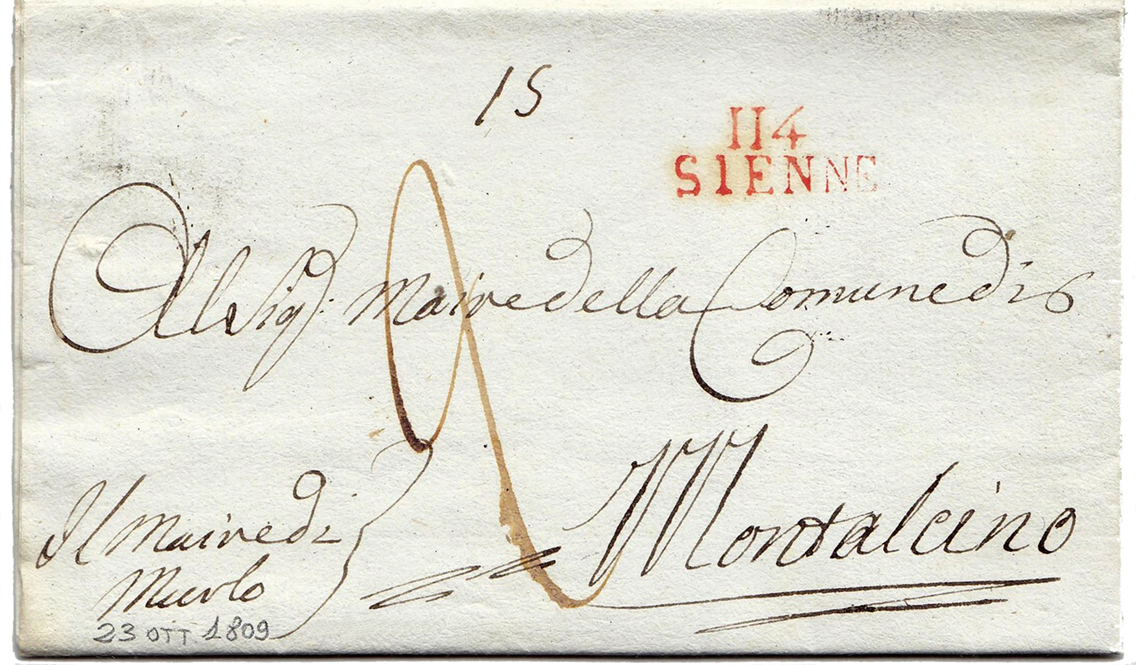 15
114
SIENNE
Al Sig.r Maire della Comune di
Montalcino
Il Maire di
Murlo
23 OTT 1809